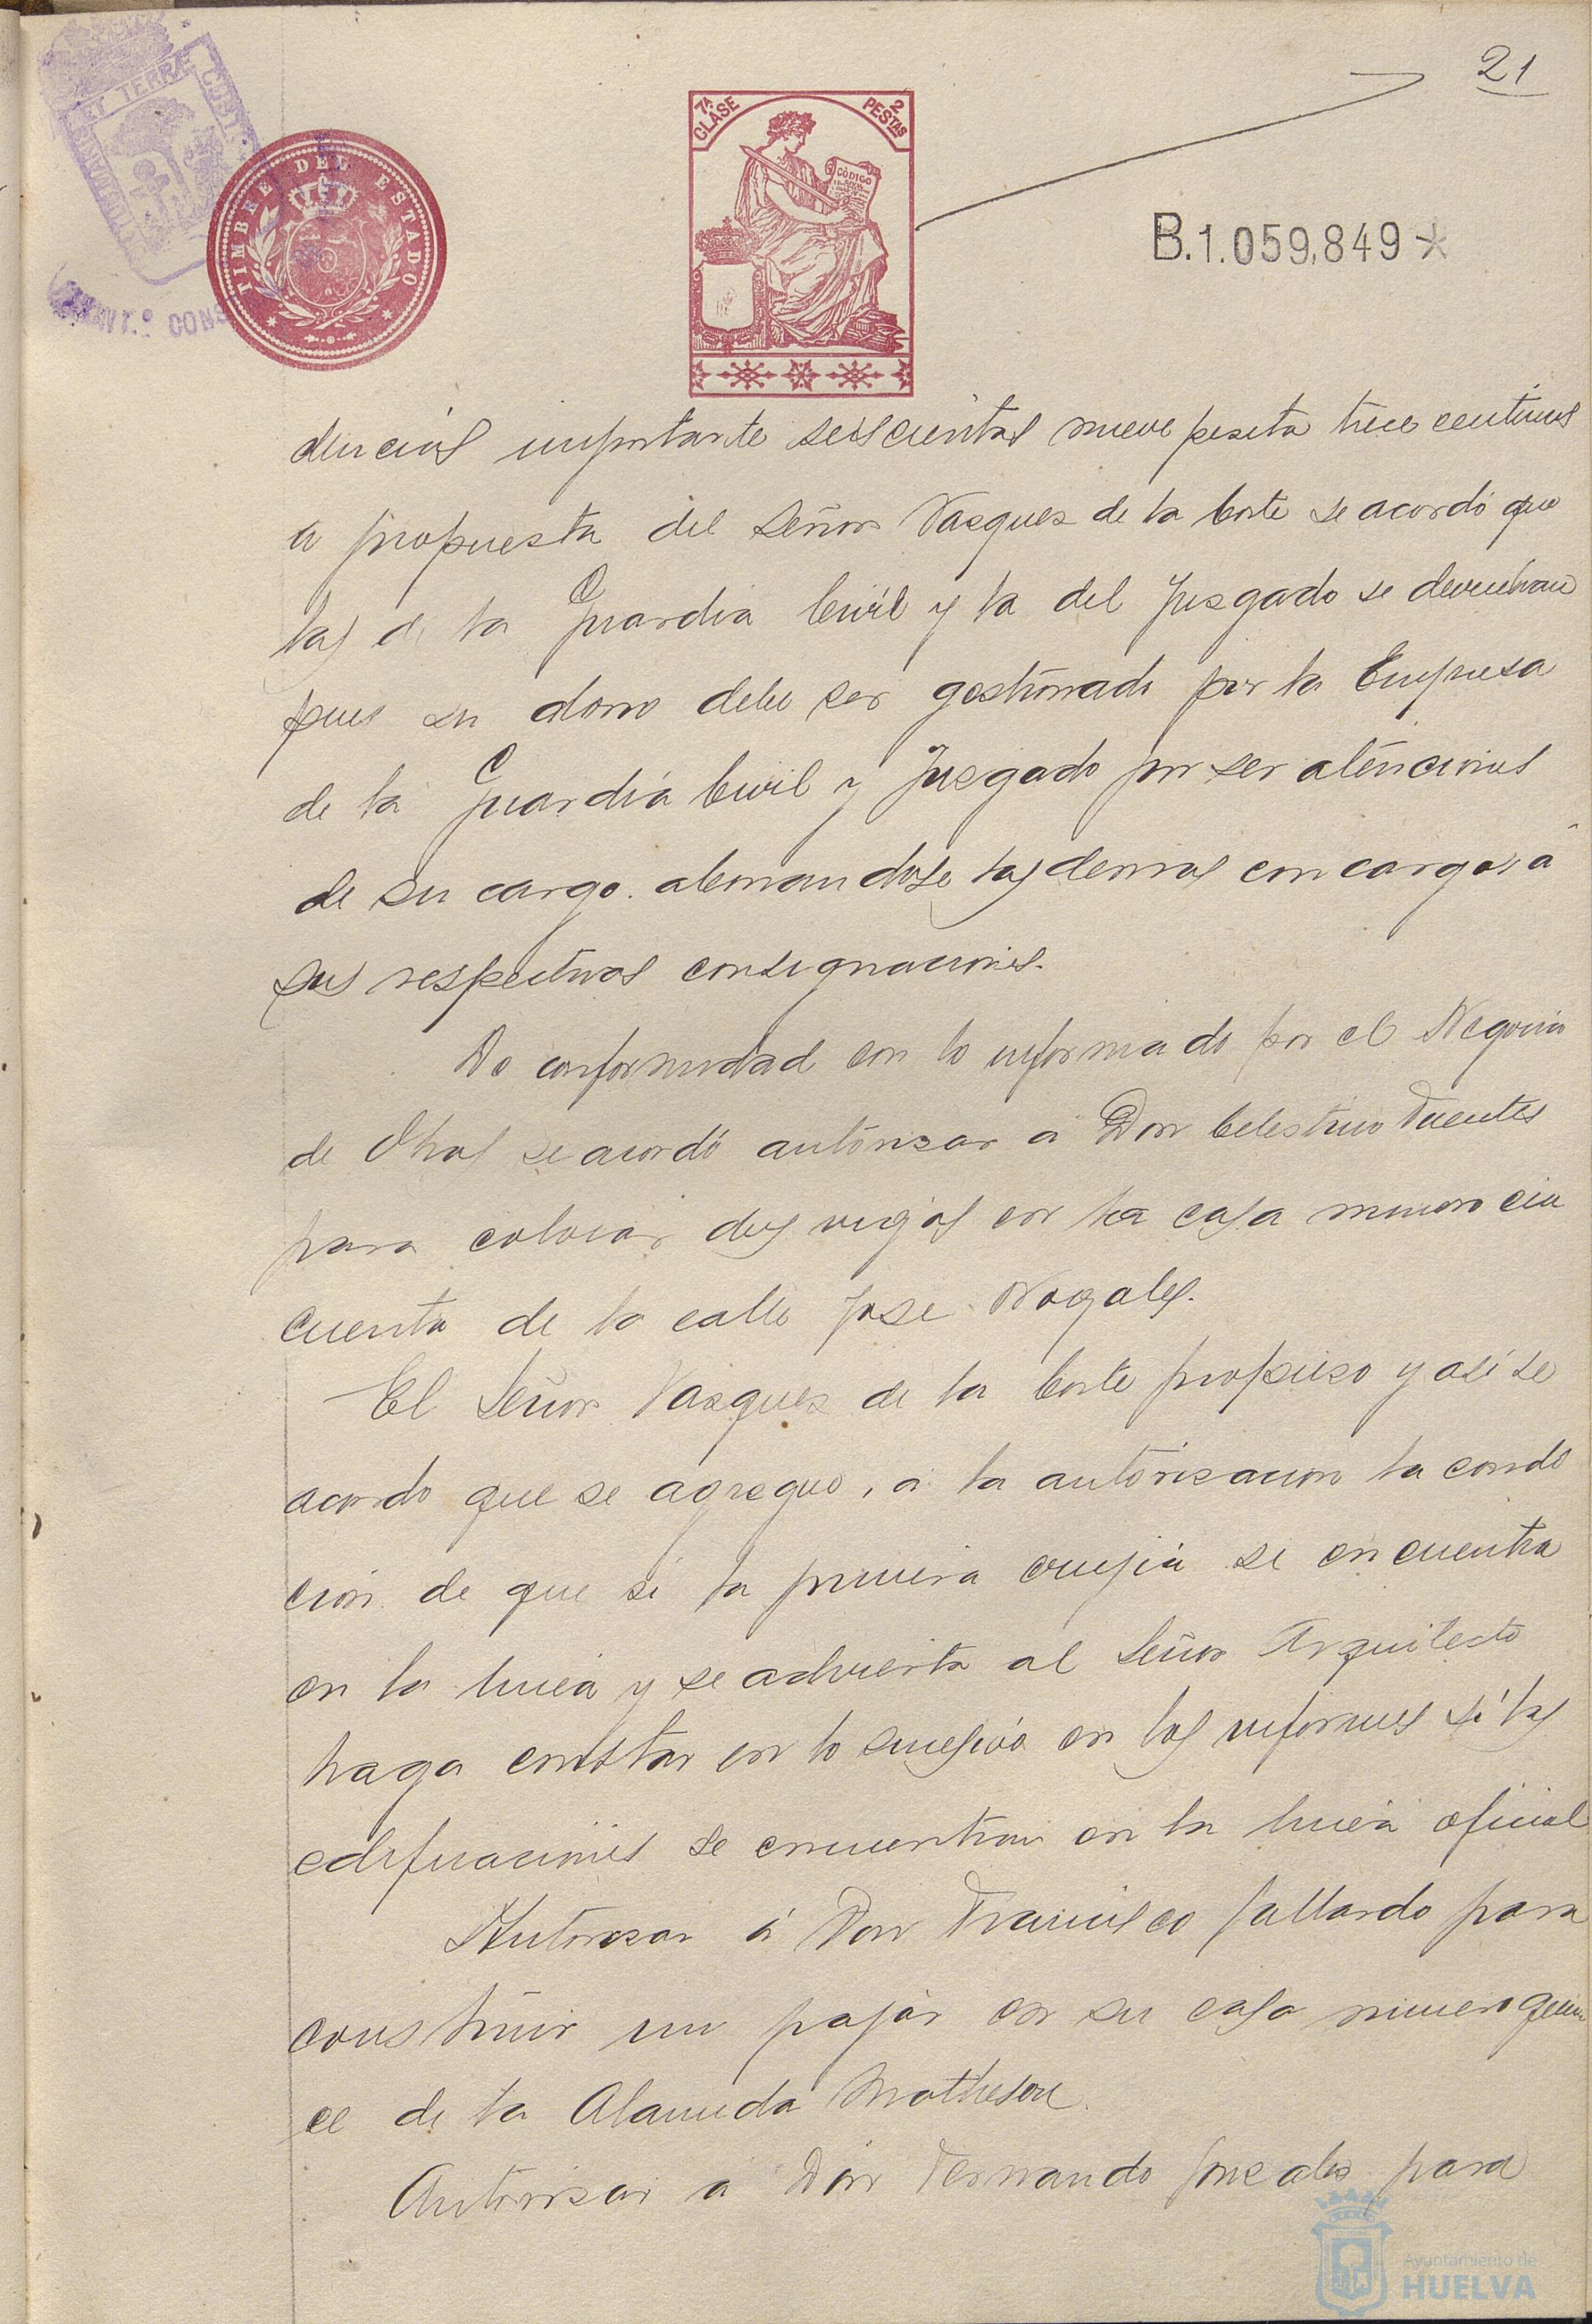 21
PORTUS MARIS ET TERRÆ CUSTODIA
AYUNT.º CONS
TIMBRE DEL ESTADO
7ª CLASE
2 PESTAS
CÓDIGO
B.1.059,849*
dencias importante seiscientas nueve peseta trece centimos
a propuesta del Señor Vasquez de la Corte se acordó que
las de la Guardia Civil y la del Jusgado se devuelvan
pues su abono debe ser gestionado por la Empresa
de la Guardia Civil y Jusgado por ser atenciones
de su cargo. abonandose las demas con cargo á
sus respectivas consignaciones.
De conformidad con lo informado por el Negocia
de Obras se acordó autorisar á Don Celestino Fuentes
para colocar dos vigas en la casa numero cin
cuenta de la calle Jose Nogales.
El Señor Vasquez de la Corte propuso y asi se
acordo que se agregue, á la autorisacion la condi
ción de que si la primera crujia se encuentra
en la linea y se advierta al Señor Arquitecto
haga constar en lo sucesivo en los informes si las
edificaciones se encuentran en la linea oficial
Autorisar á Don Francisco Gallardo para
construir un pajar en su casa numero quin
ce de la Alameda Matheson.
Autorisar a Don Fernando Gonzales para
Ayuntamiento de
HUELVA